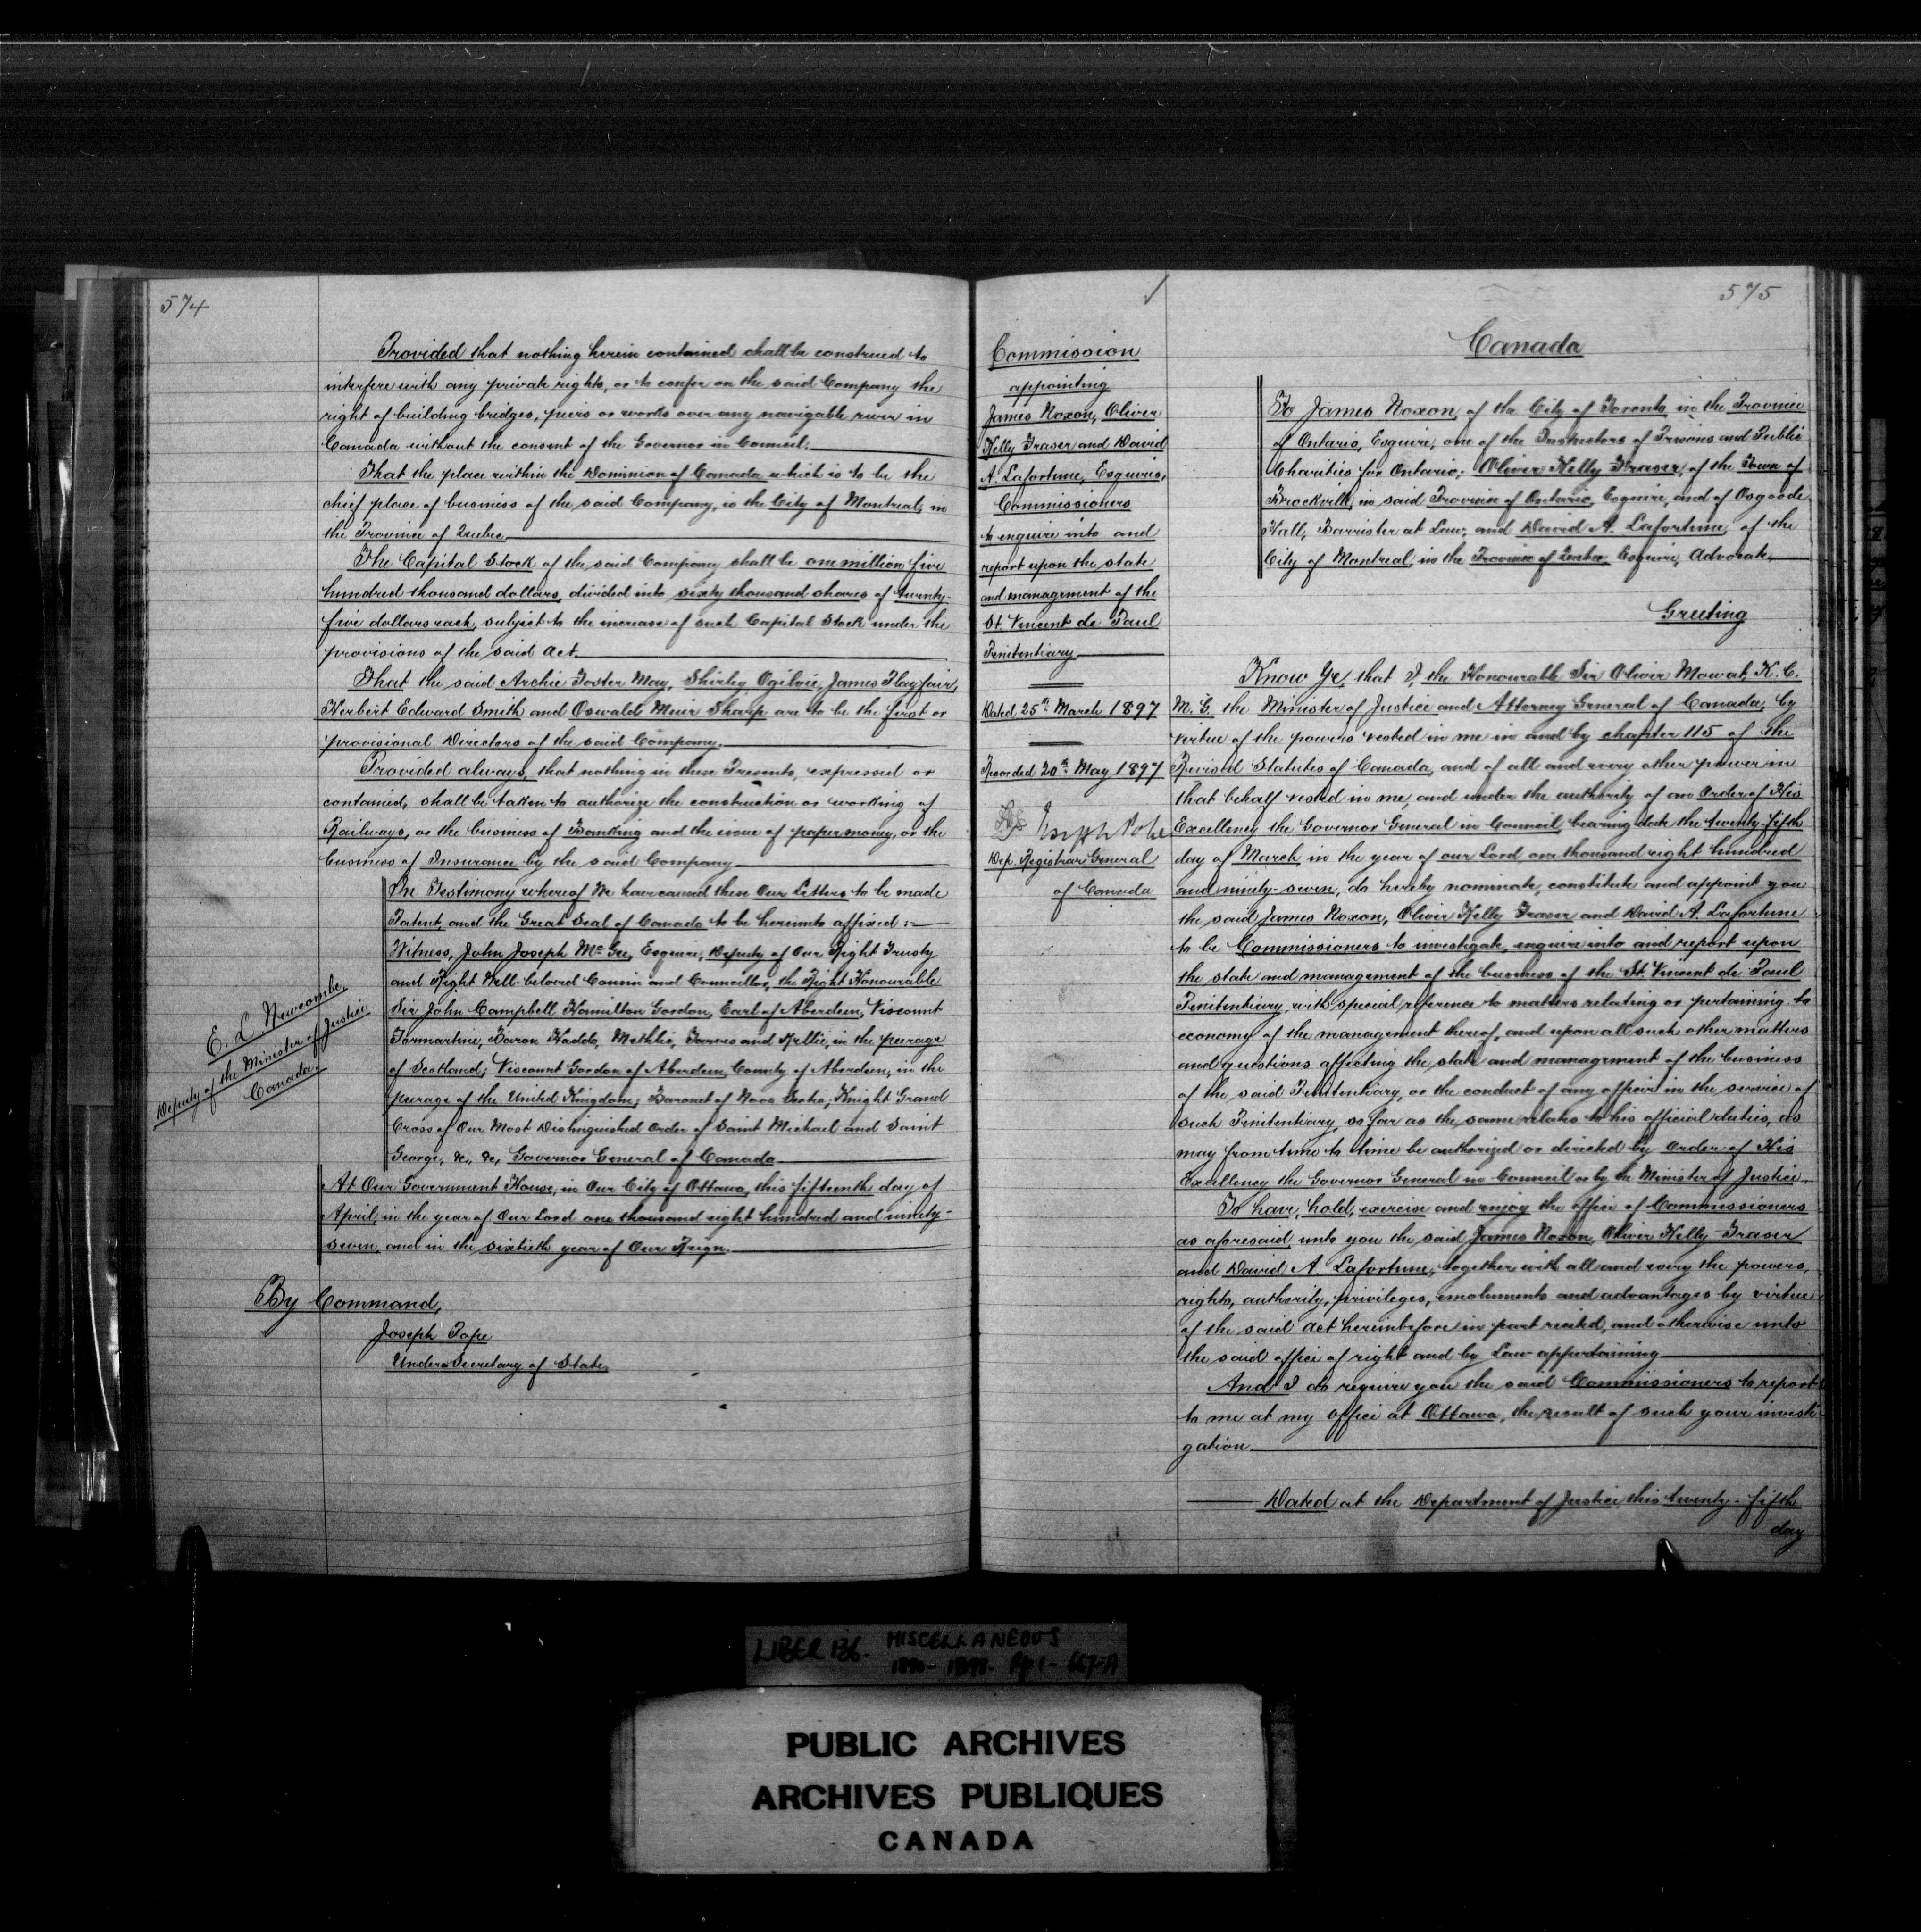 574
Provided that nothing herein contained shall be construed to
interfere with any private rights, or to confer on the said Company the
right of building bridges, piers or works over any navigable river in
Canada without the consent of the Governor in Council.
That the place within the Dominion of Canada which is to be the
chief place of business of the said Company, is the City of Montreal, in
the Province of Quebec
The Capital Stock of the said Company shall be one million five
hundred thousand dollars, divided into sixty thousand shares of twenty-
five dollars each, subject to the increase of such Capital Stock under the
provisions of the said Act.
That the said Archie Foster May, Shirley Ogilvie, James Playfair,
Herbert Edward Smith and Oswald Meuir Sharp are to be the first or
provisional Directors of the said Company.
Provided always, that nothing in these Presents, expressed or
contained, shall be taken to authorize the construction or working of
Railways, or the business of Banking and the issue of paper money, or the
business of Insurance by the said Company
In Testimony whereof We have caused these Our Letters to be made
Patent, and the Great Seal of Canada to be hereunto affixed :-
Witness, John Joseph McGee, Esquire, Deputy of Our Right Trusty
and Right Well-beloved Cousin and Councillor, the Right Honourable
Sir John Campbell Hamilton Gordon, Earl of Aberdeen, Viscount
Formartine, Baron Haddo, Methlic, Tarves and Kellie, in the peerage
of Scotland; Viscount Gordon of Aberdeen, County of Aberdeen, in the
peerage of the United Kingdom; Baronet of Nova Scotia; Knight Grand
Cross of Our Most Distinguished Order of Saint Michael and Saint
George, &c., &c., Governor General of Canada
At Our Government House, in Our City of Ottawa, this fifteenth day of
April, in the year of Our Lord one thousand eight hundred and ninety-
seven, and in the sixtieth year of Our Reign.
E. L. Newcombe,
Deputy of the Minister of Justice
Canada.
By Command,
Joseph Pope
Under Secretary of State
575
Commission
appointing
James Noxon, Oliver
Kelly Fraser and David
A. Lafortune, Esquires,
Commissioners
to enquire into and
report upon the state
and management of the
St. Vincent de Paul
Penitentiary
Dated 25th March 1897
Recorded 20th May 1897
Joseph Pope
Dep. Registrar General
of Canada
Canada
To James Noxon, of the City of Toronto, in the Province
of Ontario, Esquire, one of the Inspectors of Prisons and Public
Charities for Ontario; Oliver Kelly Fraser, of the Town of
Brockville, in said Province of Ontario, Esquire, and of Osgoode
Hall, Barrister at Law; and David A. Lafortune, of the
City of Montreal, in the Province of Quebec, Esquire, Advocate,
Greeting
Know Ye, that I, the Honourable Sir Oliver Mowat, K.C.
M.G. the Minister of Justice and Attorney General of Canada, by
virtue of the powers vested in me in and by chapter 115 of the
Revised Statutes of Canada, and of all and every other power in
that behalf vested in me, and under the authority of an Order of His
Excellency the Governor General in Council, bearing date the twenty-fifth
day of March, in the year of our Lord one thousand eight hundred
and ninety-seven, do hereby nominate, constitute and appoint you
the said James Noxon, Oliver Kelly Fraser and David A. Lafortune
to be Commissioners to investigate, enquire into and report upon
the state and management of the business of the St. Vincent de Paul
Penitentiary, with special reference to matters relating or pertaining to
economy of the management thereof, and upon all such other matters
and questions affecting the state and management of the business
of the said Penitentiary, or the conduct of any officer in the service of
such Penitentiary, so far as the same relates to his official duties, as
may from time to time be authorized or directed by Order of His
Excellency the Governor General in Council or by the Minister of Justice
To have, hold, exercise and enjoy the office of Commissioners
as aforesaid, unto you the said James Noxon, Oliver Kelly Fraser
and David A. Lafortune, together with all and every the powers,
rights, authority, privileges, emoluments and advantages by virtue
of the said Act hereinbefore in part recited, and otherwise unto
the said office of right and by Law appertaining
And I do require you the said Commissioners to report
to me at my office at Ottawa, the result of such your investi-
gation
Dated at the Department of Justice, this twenty-fifth
day
LIBER 136. MISCELLANEOUS
1890-1898. Pp 1-667-A
PUBLIC ARCHIVES
ARCHIVES PUBLIQUES
CANADA